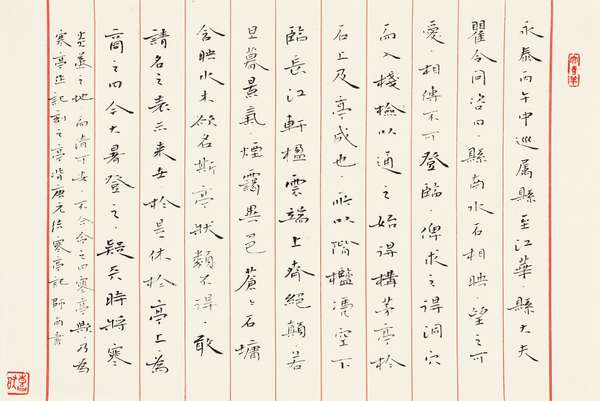 永泰丙午中巡屬縣至江華縣大夫
瞿令問咨曰縣南水石相映望之可
愛相傳不可登臨俾求之得洞穴
而入棧險以通之始得構茅亭於
石上及亭成也所以階檻憑空下
臨長江軒楹雲端上齊絕顛若
旦暮景氣煙靄異色蒼〻石墉
含映水木欲名斯亭狀類不得敢
請名之表示來世於是休於亭上為
商之曰今大暑登之疑天時將寒
炎蒸之地而清可安不合命之曰寒亭歟乃為
寒亭作記刻之亭背唐元結寒亭記